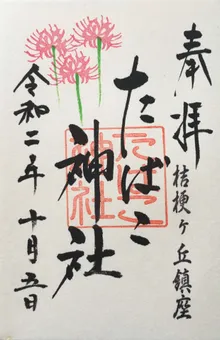 奉拝
桔梗ヶ丘鎮座
たばこ神社
たばこ
神社
令和二年十月五日